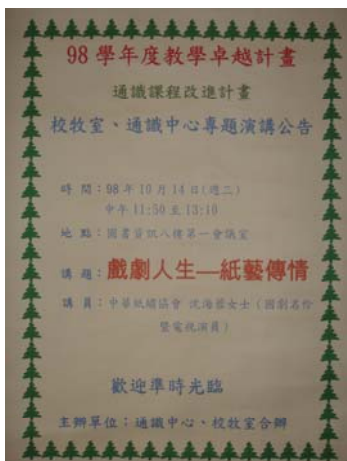 98 學年度教學卓越計畫
通識課程改進計畫
校牧室、通識中心專題演講公告
時 間：98年10月14日(週二)
中午11:50至13:10
地 點：圖書資訊八樓第一會議室
講 題：戲劇人生—紙藝傳情
講 員：中華紙繡協會 沈海蓉女士（國劇名伶
暨電視演員）
歡迎準時光臨
主辦單位：通識中心、校牧室合辦